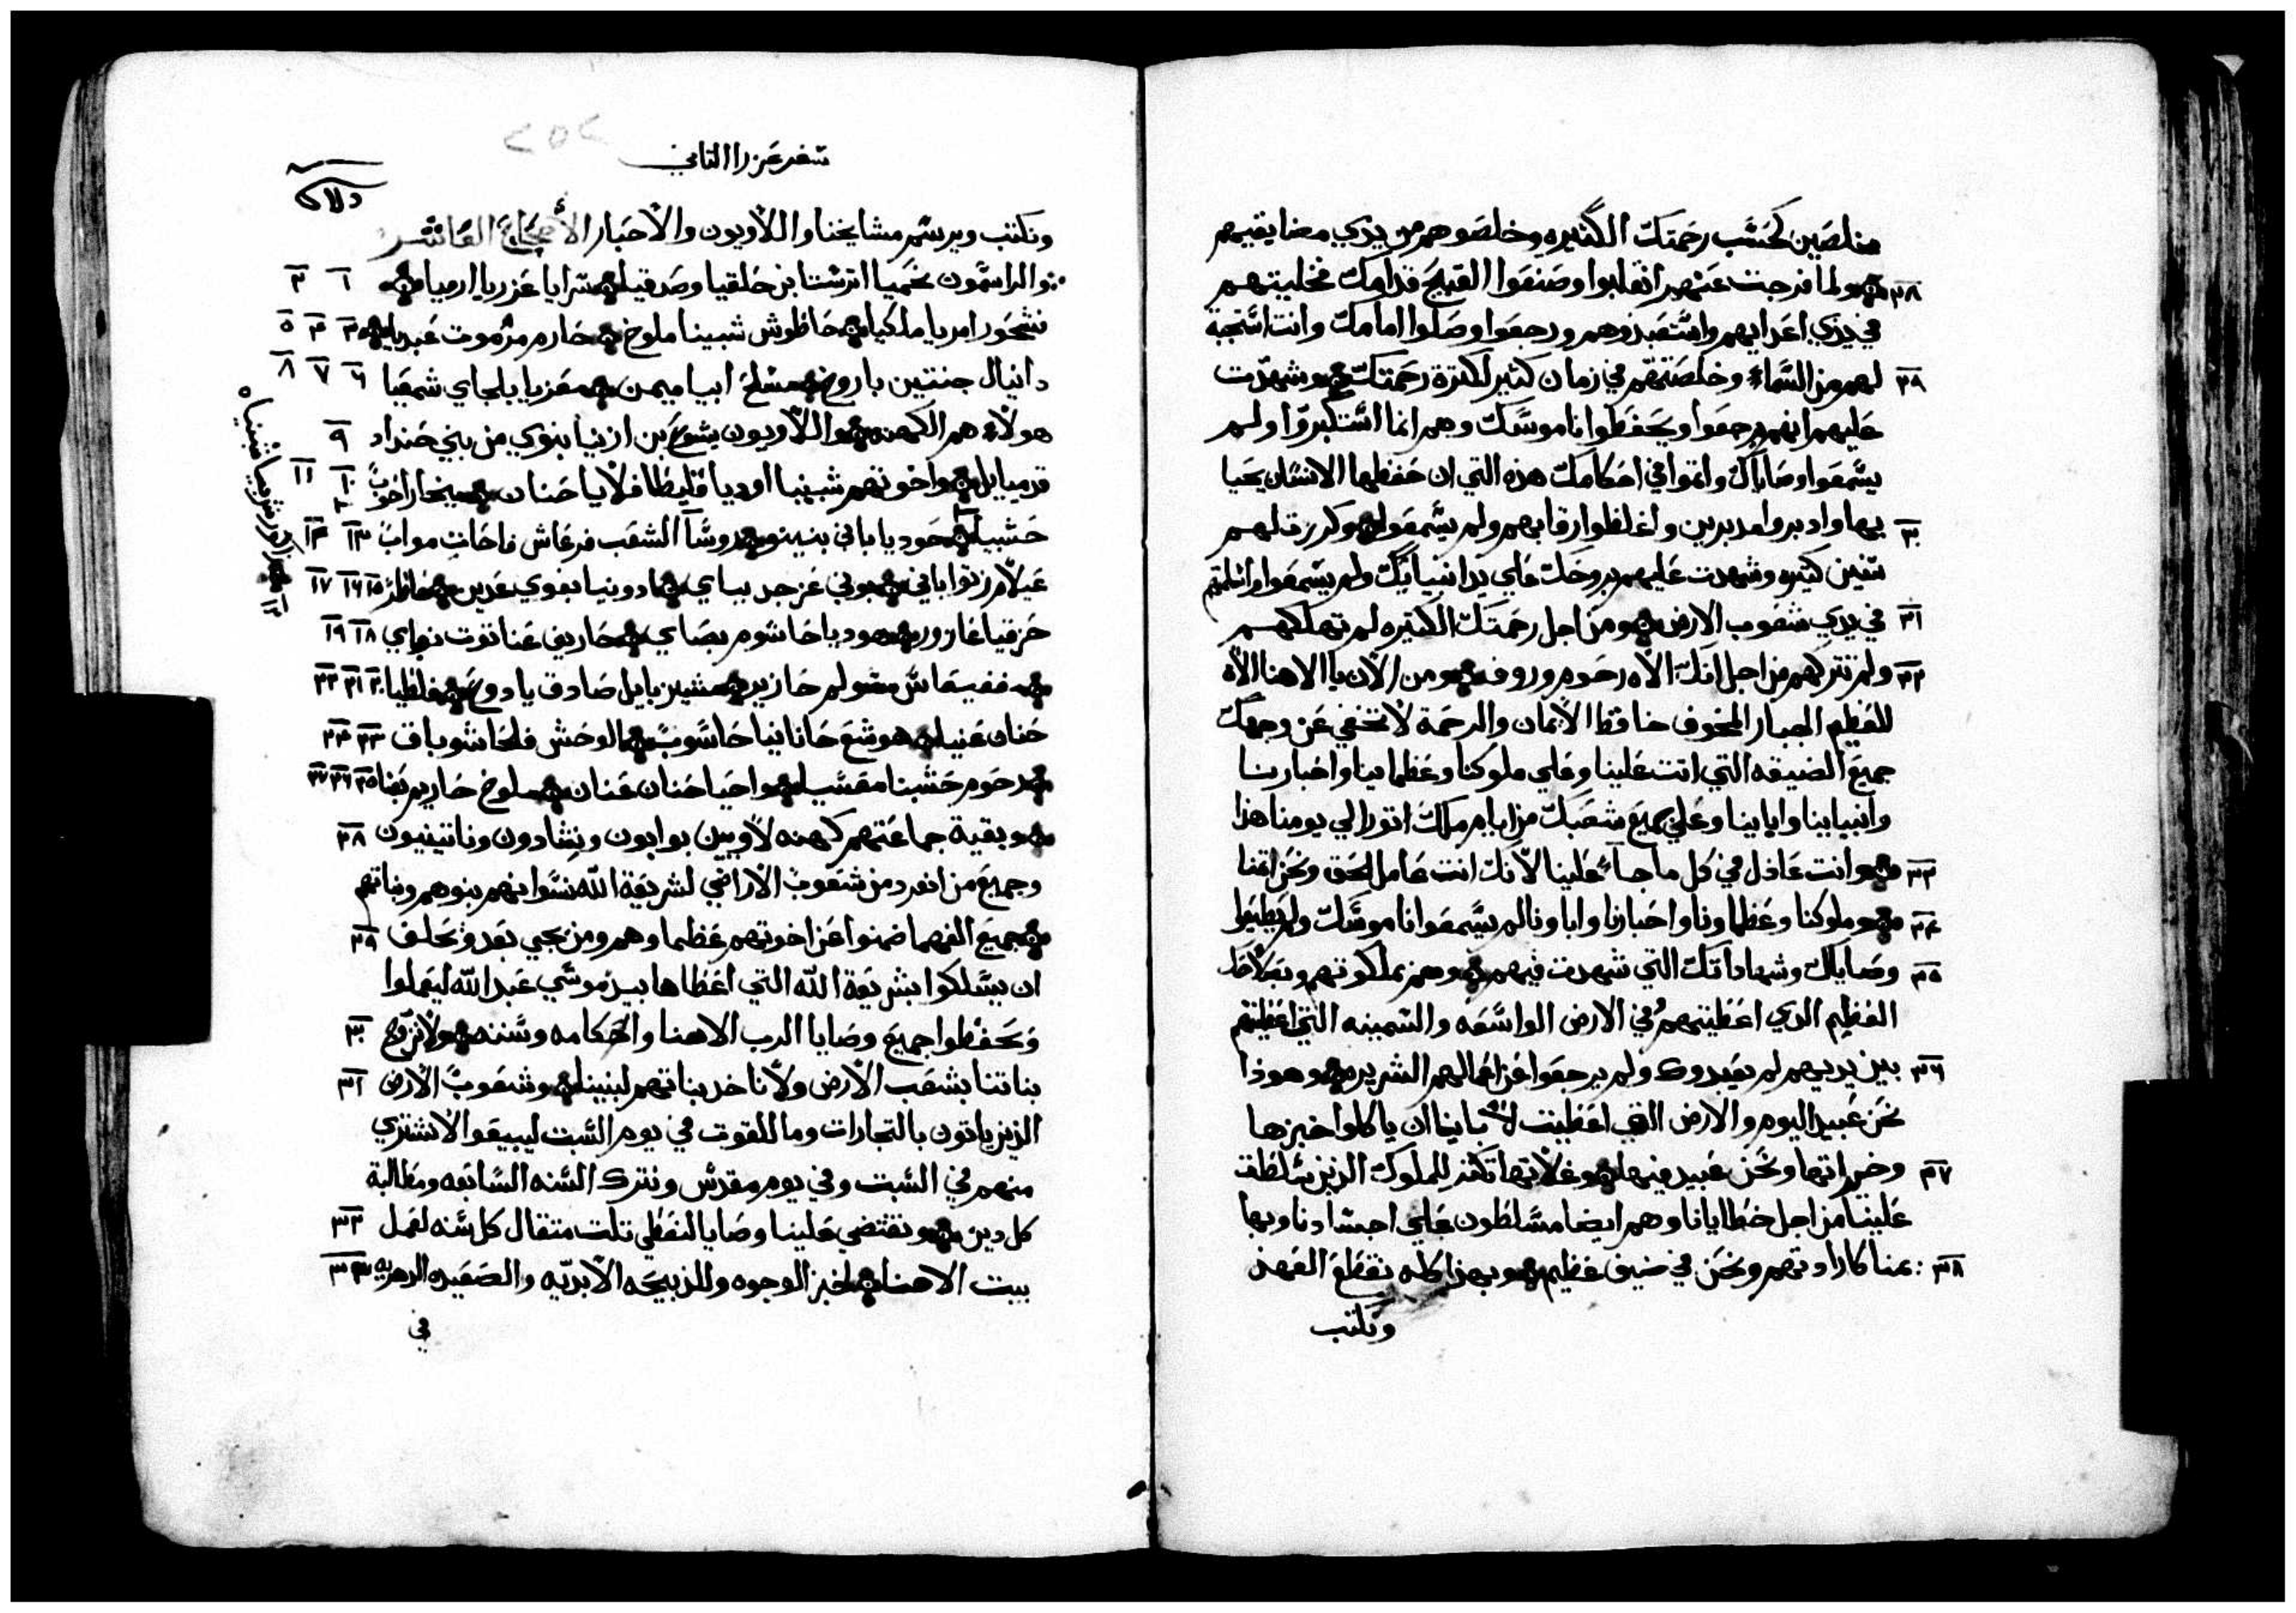 مخلصين كحسب رحمتك الكثيره وخلصوهم من يدي مضايقيهم
٢٨ ولما فرجت عنهم انقلبوا وصنعوا القبيح قدامك فخليتهم
في يدي اعدايهم واستعبدوهم ورجعوا وصلوا امامك وانت استجبة
٢٩ لهم من السماء وخلصتهم في زمان كثير لكثرة رحمتك وشهدت
عليهم انهم يرجعوا ويحفظوا ناموسك وهم انما استكبروا ولم
يسمعوا وصاياك واتموا في احكامك هذه التي ان حفظها الانسان يحيا
٣٠ بها وادبروا مدبرين واغلظوا رقابهم ولم يسمعوا وكررت لهم
سنين كثيره وشهدت عليهم بروحك علي يد انبيايك ولم يسمعوا واسلمتهم
٣١ في يدي شعوب الارض ومن اجل رحمتك الكثيره لم تهلكهم
٣٢ ولم تتركهم من اجل انك الاه رحوم وروف ومن الان يا الاهنا الاه
العظيم الجبار المخوف حافظ الايمان والرحمة لا تختفي عن وجهك
جميع الضيقه التي اتت علينا وعلي ملوكنا وعظماينا واحبارنا
وانبيابنا وابابنا وعلي جميع شعبك من ايام ملك اتور الي يومنا هذا
٣٣ وانت عادل في كل ما جاء علينا لانك انت عامل الحق ونحن اثمنا
٣٤ وملوكنا وعظماونا واحبارنا واباونا لم يسمعوا ناموسك ولم يطيعوا
٣٥ وصاياك وشهاداتك التي شهدت فيهم وهم بملكوتهم وبصلاحك
العظيم الدي اعطيتهم في الارض الواسعه والسمينه التي اعطيتهم
٣٦ بين يديهم لم يعبدوك ولم يرجعوا عن اعمالهم الشريره وهوذا
نحن عبيد اليوم والارض التي اعطيت لابابنا ان ياكلوا خبزها
٣٧ وخيراتها ونحن عبيد فيها وغلاتها تكثر للملوك الذين سلطت
علينا من اجل خطايانا وهم ايضا مسلطون علي اجسادنا وبها
٣٨ يمنا كارادتهم ونحن في ضيق عظيم وبهذا كله نقطع العهد
ونكتب
سفر عزرا الثاني
٢٥٢
ونكتب ويرسم مشايخنا واللاويون والاحبار الأصحاح العاشر
والراسمون نحميا اترشتا بن حلقيا وصدقيا سرايا عزريا ارميا ٢ ٣
فشحور امريا ملكيا حاطوش شبينا ملوخ حارم مرموت عبديا ٣ ٤ ٥
دانيال جنتين باروخ مشلح ابيا ميمن معزيا بلجاي شمعيا ٦ ٧ ٨
هولاء هم الكهنه واللاويون يشوع بن ازنيا بنوي من بني حنداد ٩
قدميايل واخوتهم شبنيا اوديا قليطا فلايا حنان ميخا راحوب ١٠ ١١
حشبيا حوديا باني بنينو روسا الشعب فرعاش فاحات مواب ١٣ ١٤
عيلام زتوا باني بوني عزجد بباي ادونيا بغوي عدين اطار ١٥ ١٦ ١٧
حزقيا عازور هوديا حاشوم بصاي حاريف عناتوت نوباي ١٨ ١٩
مغفيعاس مشولم حازير مشيزبايل صادق يادوع فلطيا ٢٠ ٢١ ٢٢
حنان عنيا هوشع حانانيا حاسوب الوحش فلحا شوباق ٢٣ ٢٤
رحوم حشبنا معسيا واحيا حنان عنان ملوخ حاريم بعنا ٢٥ ٢٦ ٢٧
وبقية جماعتهم كهنه لاويين بوابون ونشادون وناتينيون ٢٨
وجميع من انفرد من شعوب الاراضي لشريعة الله نسوانهم بنوهم وبناتهم
جميع الفهما ضمنوا عن اخوتهم عظما وهم ومن يجي بعد وتحلف ٢٩
ان يسلكوا بشريعة الله التي اعطاها بيد موسي عبد الله ليعملوا
وتحفظوا جميع وصايا الرب الاهنا واحكامه وسننه ولا نزوج ٣٠
بناتنا بشعب الارض ولا ناخد بناتهم لبنينا وشعوب الارض ٣١
الذين ياتون بالتجارات وما للقوت في يوم السبت ليبيعوا لا نشتري
منهم في السبت وفي يوم مقدس ونترك السنه السابعه ومطالبة
كل دين ونقتضي علينا وصايا لنعطي تلت متقال كل سنه لعمل ٣٢
بيت الاهنا لخبز الوجوه وللذبيحه الابديه والصعيده الدهريه ٣٣
في